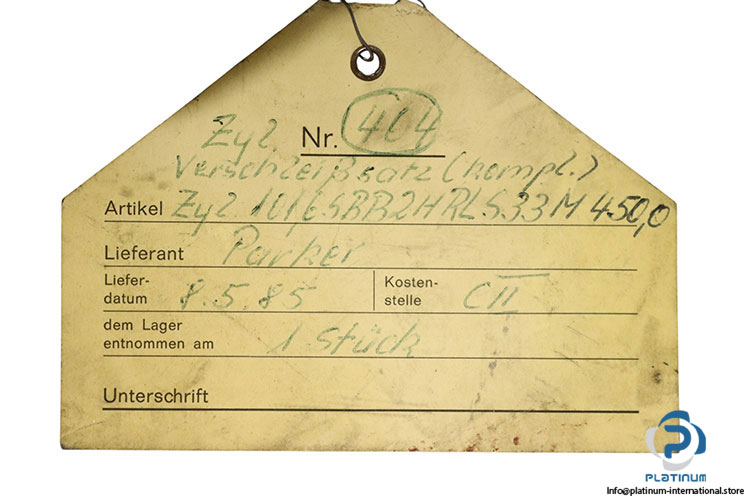 Zyl. Nr. 404
Verschleißsatz (kompl.)
Artikel Zyl. 101,6SBB2HRLS33M 450,0
Lieferant Parker
Liefer-
datum 8.5.85
Kosten-
stelle CII
dem Lager
entnommen am 1 Stück
Unterschrift
PLATINUM
Info@platinum-international.store